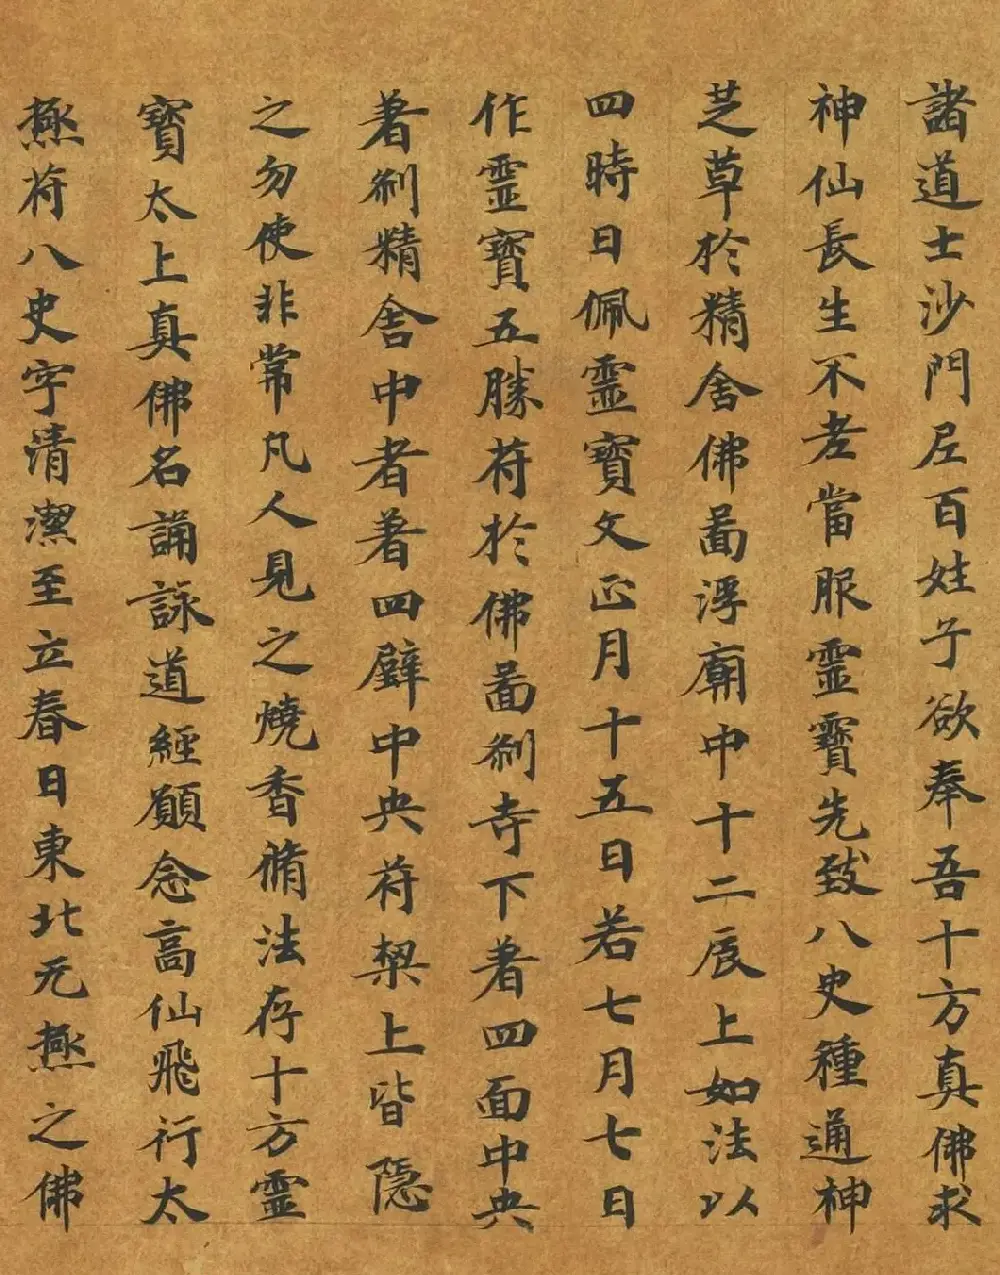 諸道士沙門尼百姓子欲奉吾十方真佛求
神仙長生不老當服靈寶先致八史種通神
芝草於精舍佛啚浮廟中十二辰上如法以
四時日佩靈寶文正月十五日若七月七日
作靈寶五勝苻於佛啚刹寺下著四面中央
著刹精舍中者著四壁中央苻樑上皆隱
之勿使非常凡人見之燒香脩法存十方靈
寶太上真佛名誦詠道經願念高仙飛行太
極苻八史字清潔至立春日東北无極之佛